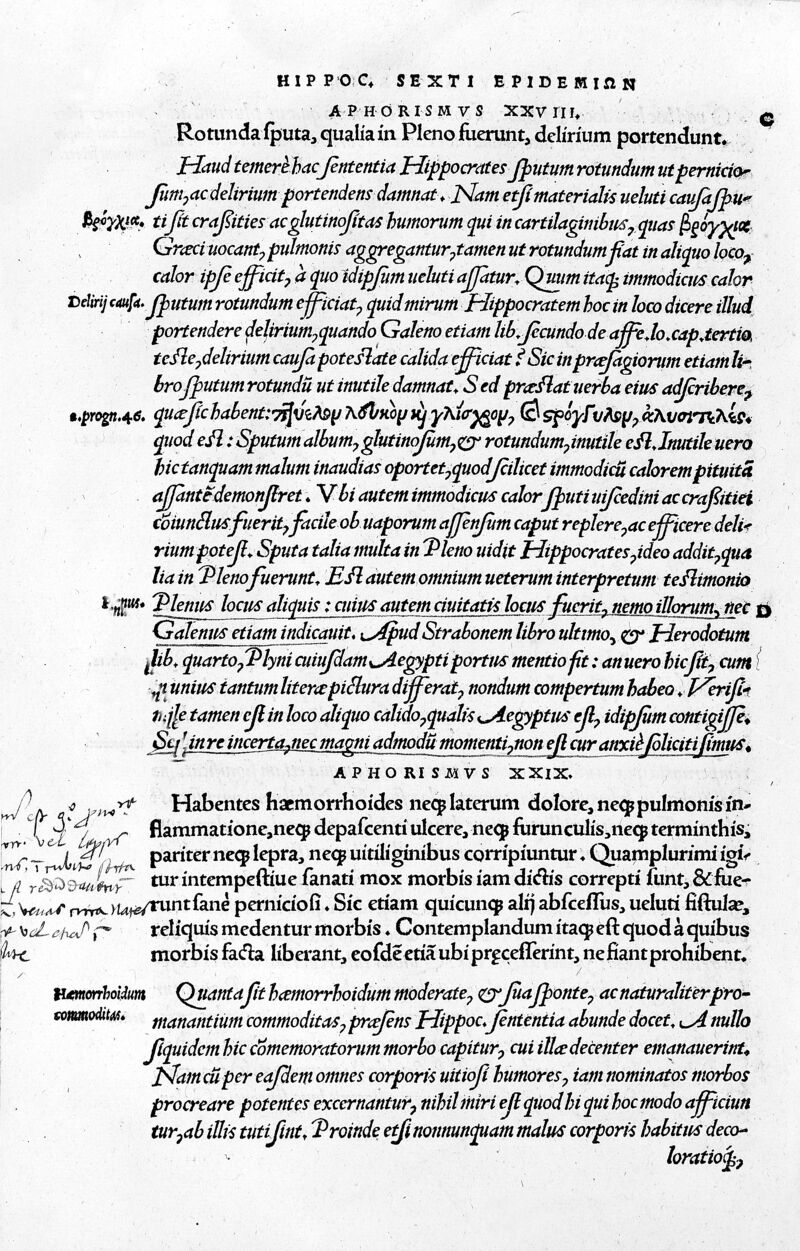 HIPPOC. SEXTI EPIDEMIΩN
APHORISMVS XXVIII.
C
Rotunda ſputa, qualia in Pleno fuerunt, delirium portendunt.
Haud temerè hac ſententia Hippocrates ſputum rotundum ut pernicio-
ſum, ac delirium portendens damnat. Nam etſi materialis ueluti cauſa ſpu-
βρόγχια. ti ſit craßities ac glutinoſitas humorum qui in cartilaginibus, quas βρόγχια
Græci uocant, pulmonis aggregantur, tamen ut rotundum fiat in aliquo loco,
calor ipſe efficit, à quo idipſum ueluti aſſatur. Quum itaq; immodicus calor
Delirij cauſa. ſputum rotundum efficiat, quid mirum Hippocratem hoc in loco dicere illud
portendere delirium, quando Galeno etiam lib. ſecundo de affe. lo. cap. tertio
teſte, delirium cauſa poteſtate calida efficiat? Sic in præſagiorum etiam li-
bro ſputum rotundū ut inutile damnat. Sed præſtat uerba eius adſcribere,
2. progn. 46. quæ ſic habent: πτύελον λευκὸν κỳ γλίσχρον, ϗ ςρόγγυλον, ἀλυσιτελές.
quod eſt: Sputum album, glutinoſum, & rotundum, inutile eſt. Inutile uero
hic tanquam malum inaudias oportet, quod ſcilicet immodicū calorem pituitā
aſſantē demonſtret. Vbi autem immodicus calor ſputi uiſcedini ac craßitiei
cōiunctus fuerit, facile ob uaporum aſſenſum caput replere, ac efficere deli-
rium poteſt. Sputa talia multa in Pleno uidit Hippocrates, ideo addit, qua
lia in Pleno fuerunt. Eſt autem omnium ueterum interpretum teſtimonio
Plenus locus aliquis: cuius autem ciuitatis locus fuerit, nemo illorum, nec
D
Galenus etiam indicauit. Apud Strabonem libro ultimo, & Herodotum
lib. quarto, Plyni cuiuſdam Aegypti portus mentio fit: an uero hic ſit, cum
unius tantum literæ pictura differat, nondum compertum habeo. Veriſi-
mile tamen eſt in loco aliquo calido, qualis Aegyptus eſt, idipſum contigiſſe.
Sed in re incerta, nec magni admodū momenti, non eſt cur anxiè ſoliciti ſimus.
APHORISMVS XXIX.
Habentes hæmorrhoides neq; laterum dolore, neq; pulmonis in-
flammatione, neq; depaſcenti ulcere, neq; furunculis, neq; terminthis,
pariter neq; lepra, neq; uitiliginibus corripiuntur. Quamplurimi igi-
tur intempeſtiue ſanati mox morbis iam dictis correpti ſunt, & fue-
runt ſanè pernicioſi. Sic etiam quicunq; alij abſceſſus, ueluti fiſtulæ,
reliquis medentur morbis. Contemplandum itaq; eſt quod à quibus
morbis facta liberant, eoſdē etiā ubi pręceſſerint, ne fiant prohibent.
Hæmorrhoidum
commoditas.
Quanta ſit hæmorrhoidum moderate, & ſua ſponte, ac naturaliter pro-
manantium commoditas, præſens Hippoc. ſententia abunde docet. A nullo
ſiquidem hic cōmemoratorum morbo capitur, cui illæ decenter emanauerint.
Nam cū per eaſdem omnes corporis uitioſi humores, iam nominatos morbos
procreare potentes excernantur, nihil miri eſt quod hi qui hoc modo afficiun
tur, ab illis tuti ſint. Proinde etſi nonnunquam malus corporis habitus deco-
loratioq́;,